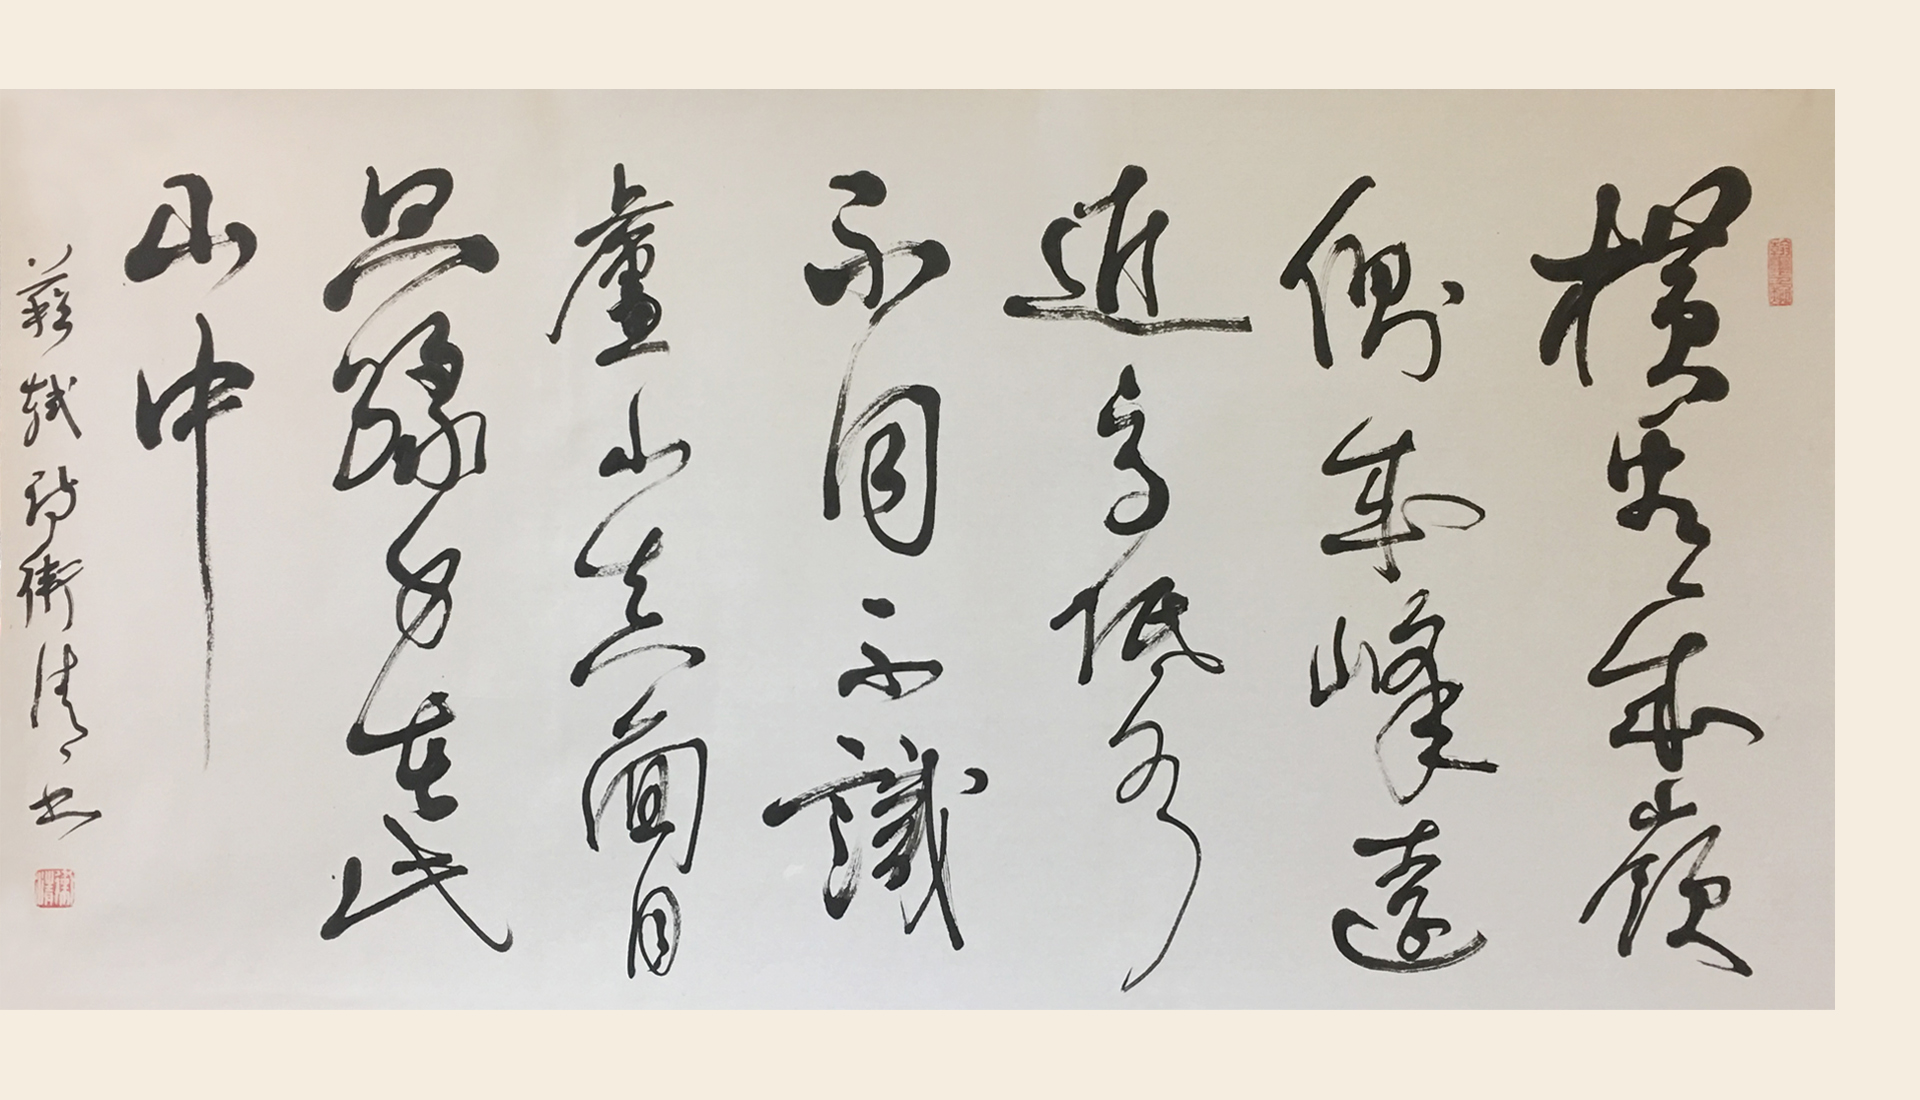 橫看成嶺
側成峰遠
近高低各
不同不識
盧山真面目
只緣身在此
山中
蘇軾詩衛清書